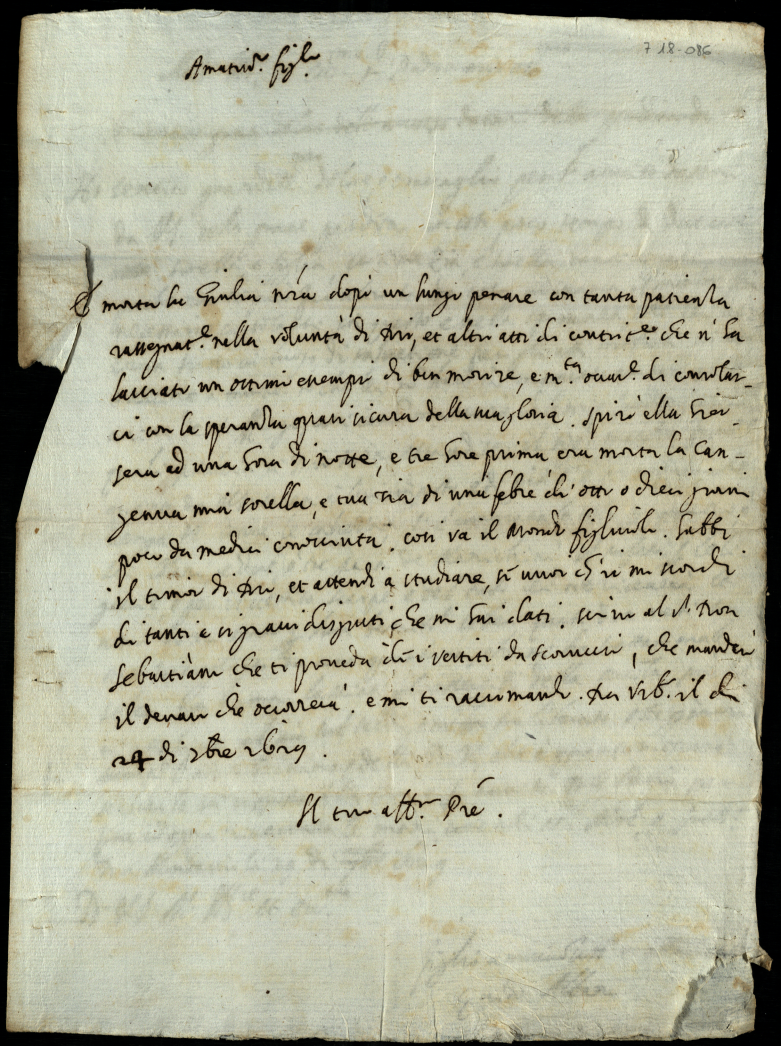 7 18-086
Amatis.º figl.º
È morta la Giulia n̄ra dopò un lungo penare con tanta patienza
rassegnat.e nella voluntà di Dio, et altri atti di contrit.e che n' ha
lasciato un ottimo essempio di ben morire, e m.ta occas.e di consolar-
ci con la speranza quasi sicura della sua gloria. spirò ella hier-
sera ad una hora di notte, e tre hore prima era morta la Can-
genua mia sorella, e tua zia di una febre di otto o dieci giorni
poco da medici conosciuta. così va il Mondo figliuolo. habbi
il timor di Dio, et attendi a studiare, se vuoi ch'io mi scordi
di tanti e sì gravi disgusti che mi hai dati. scrivo al S.r Don
Sebastiano che ti proveda di i vestiti da scoruccio, che manderò
il denaro che occorrerà. e mi ti raccomando. Da Urb.o il dì
24 di 7bre 1619.
Il tuo aff.mo Prē.